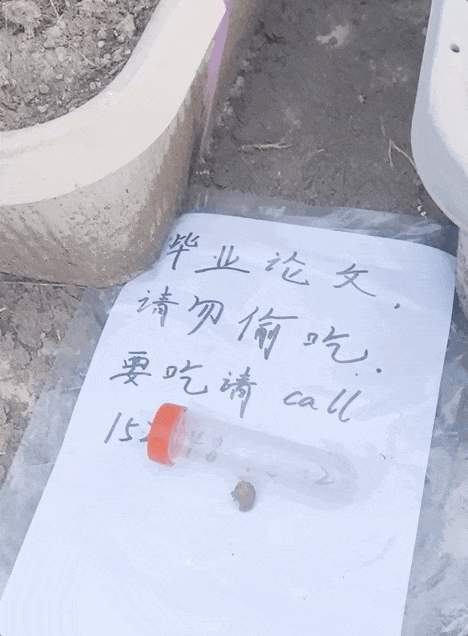 毕业论文,
请勿偷吃.
要吃请 call
152